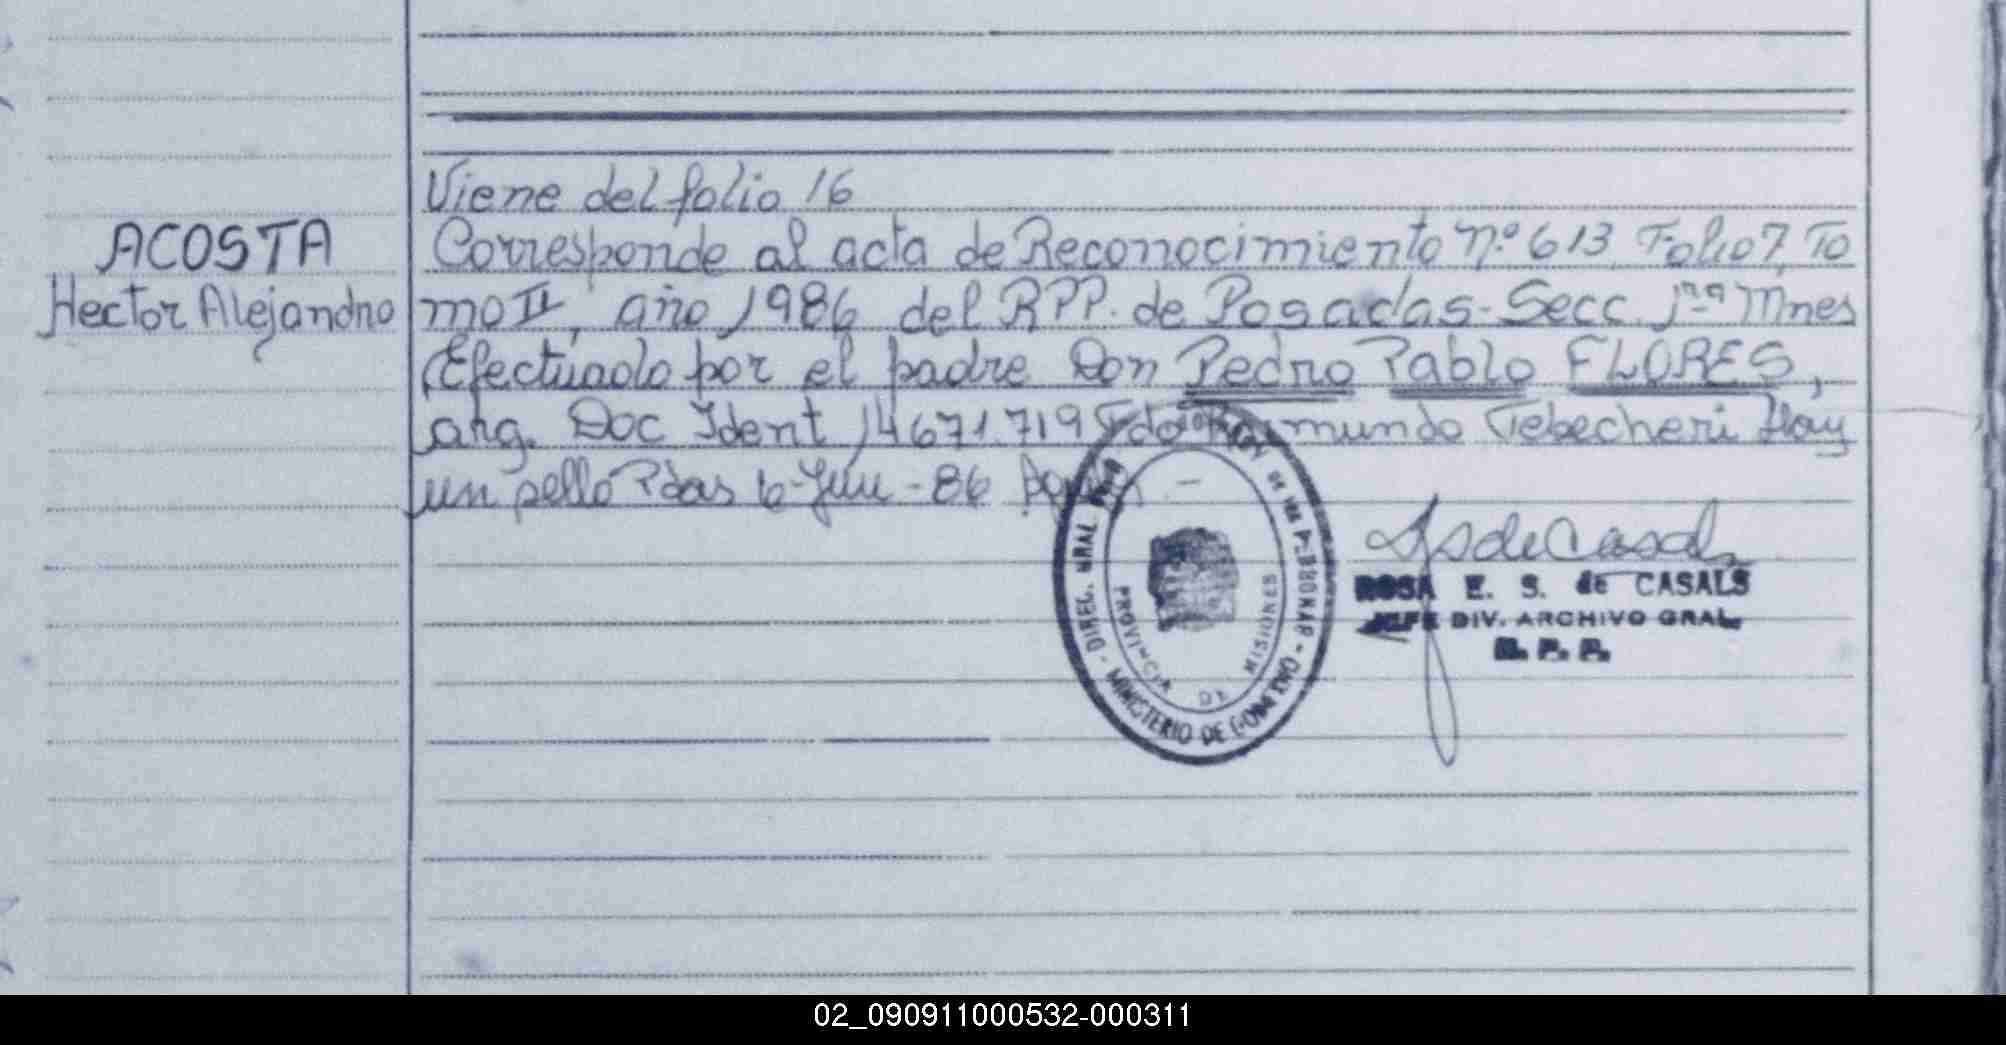 Viene del folio 16
ACOSTA
Corresponde al acta de Reconocimiento nº 613, Folio 7, To
Hector Alejandro
mo II, año 1986 del RPP. de Posadas-Secc. 1ra Mnes
Efectuado por el padre Don Pedro Pablo FLORES,
arg. Doc Ident 14671.719 Fdo mundo Tebecheri Hay
un sello Pdas 6-Jun-86
DIREC. GRAL
PROVINCIA DE MISIONES
MINISTERIO DE GOBIERNO
de Casals
ROSA E. S. de CASALS
JEFE DIV. ARCHIVO GRAL.
R. P. P.
02_090911000532-000311